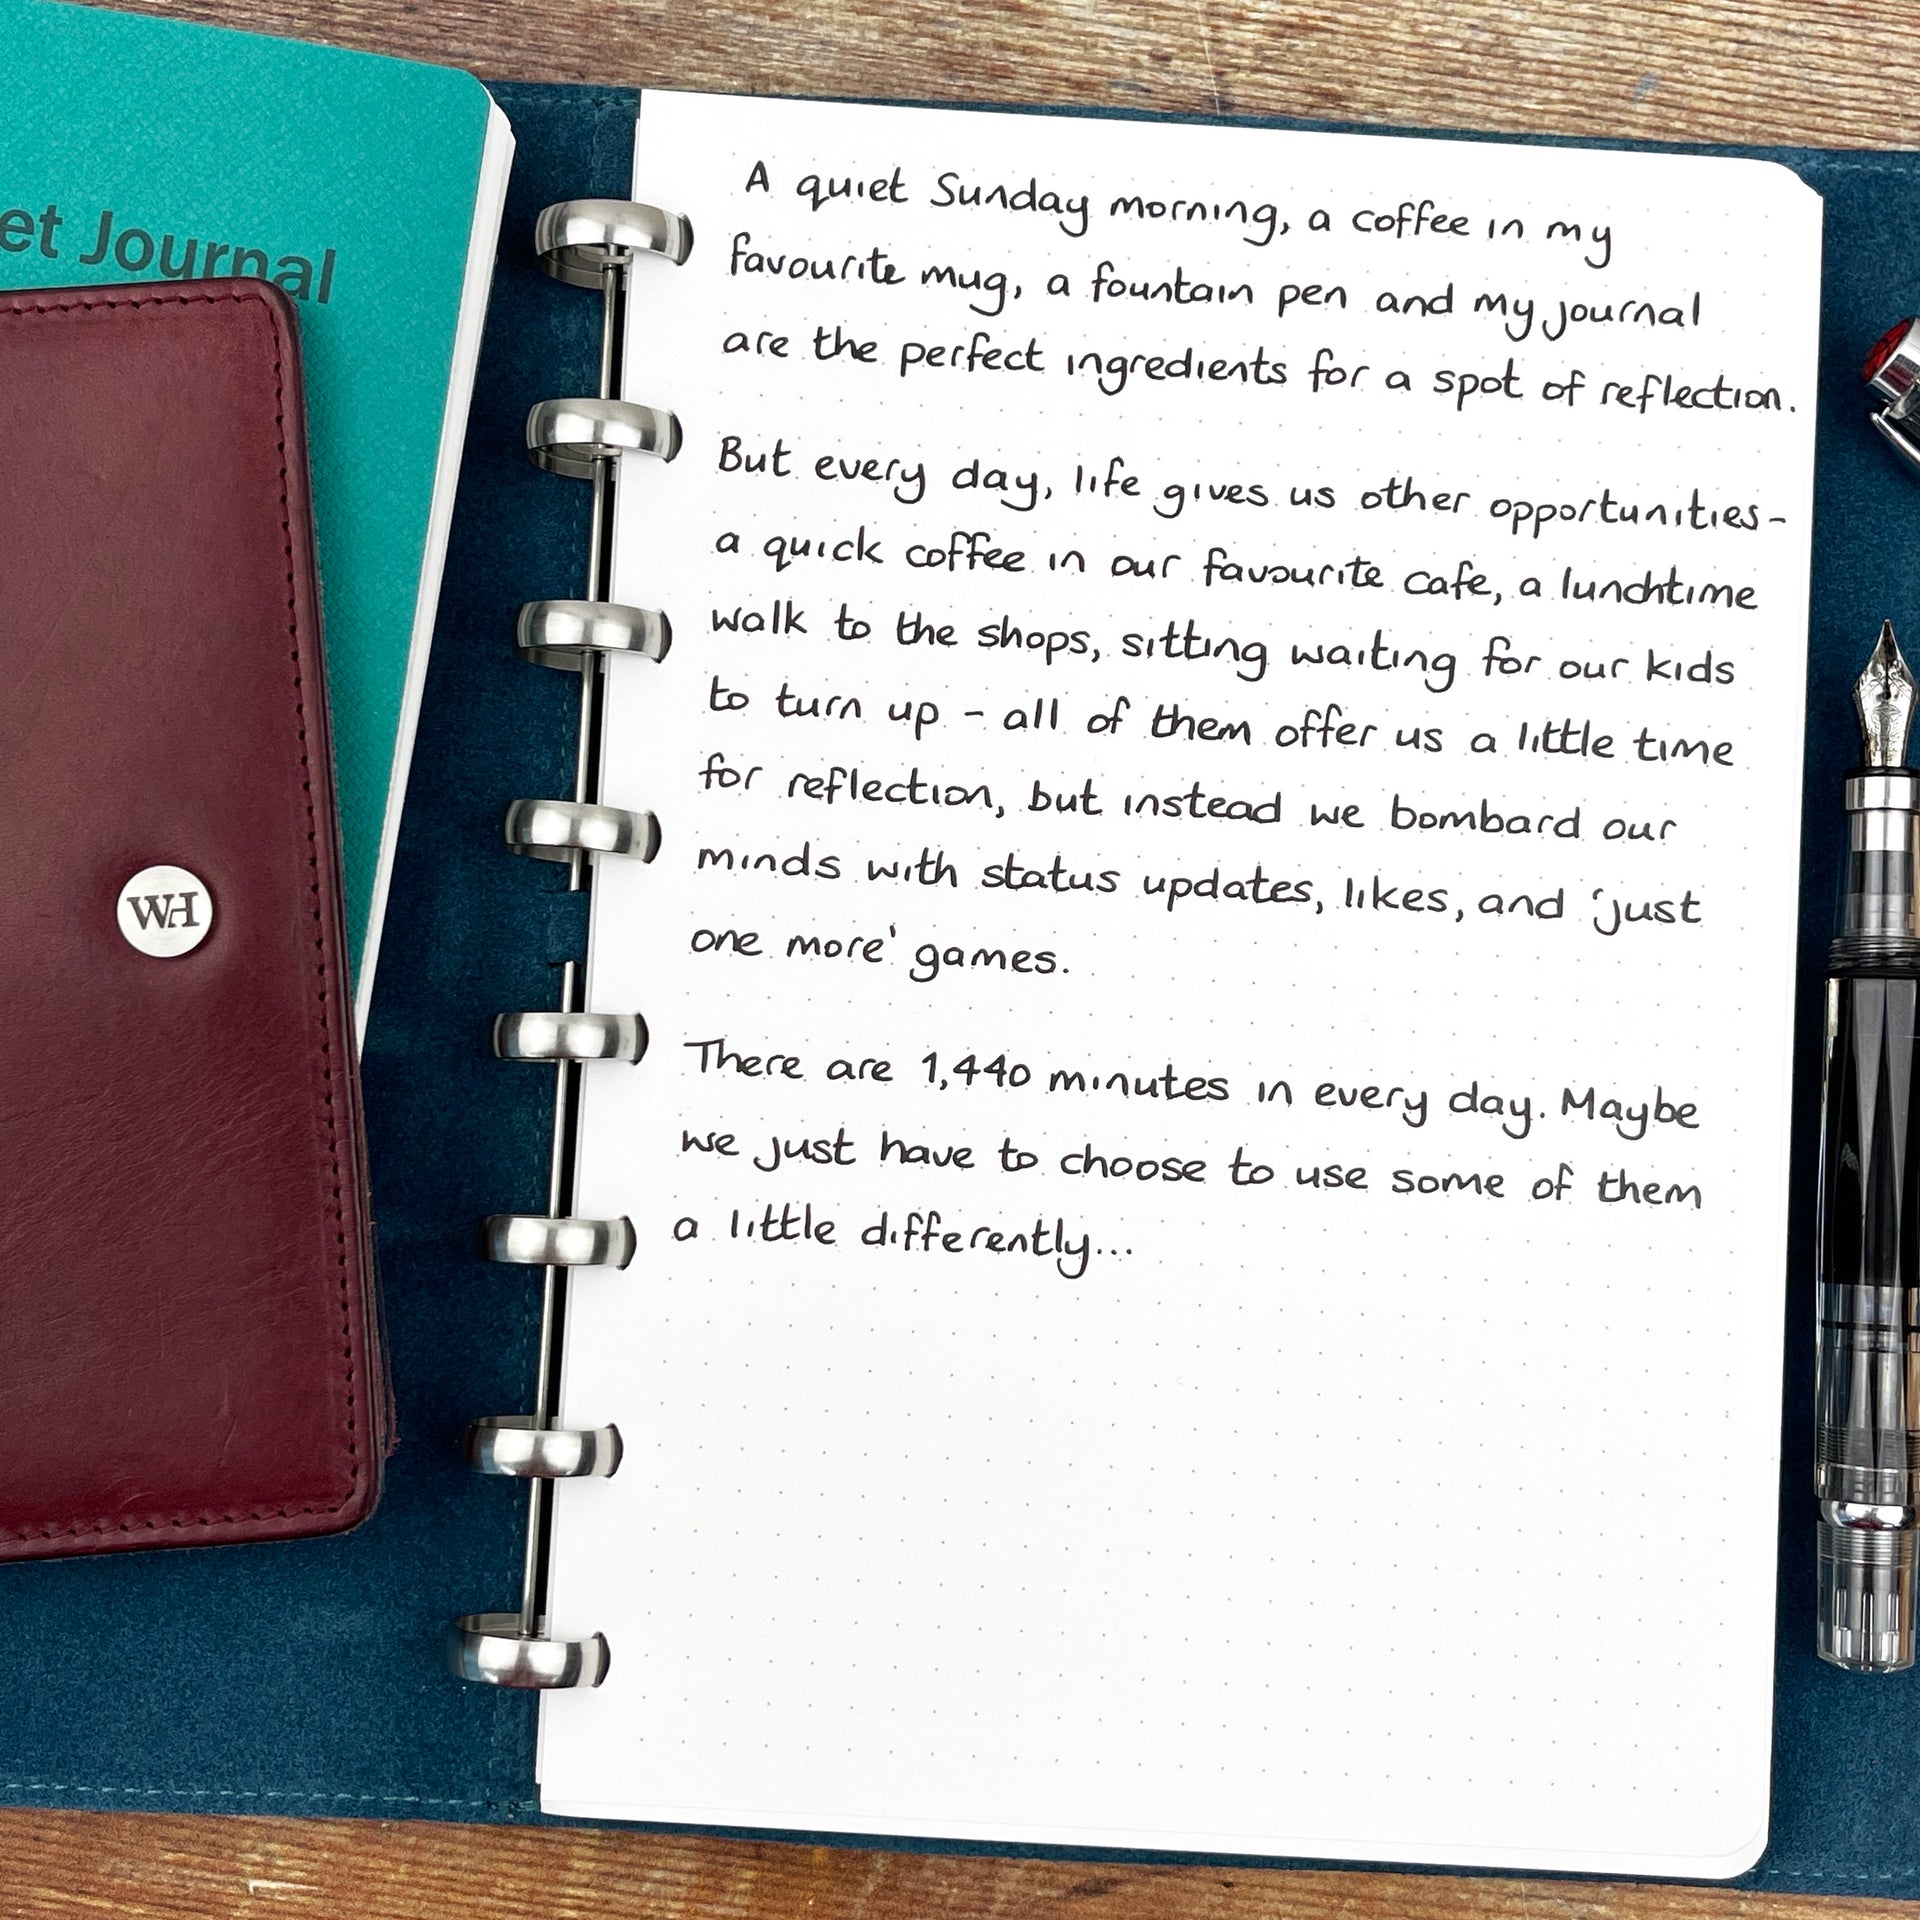 et Journal
WH
A quiet Sunday morning, a coffee in my
favourite mug, a fountain pen and my journal
are the perfect ingredients for a spot of reflection.
But every day, life gives us other opportunities-
a quick coffee in our favourite cafe, a lunchtime
walk to the shops, sitting waiting for our kids
to turn up - all of them offer us a little time
for reflection, but instead we bombard our
minds with status updates, likes, and 'just
one more' games.
There are 1,440 minutes in every day. Maybe
we just have to choose to use some of them
a little differently...